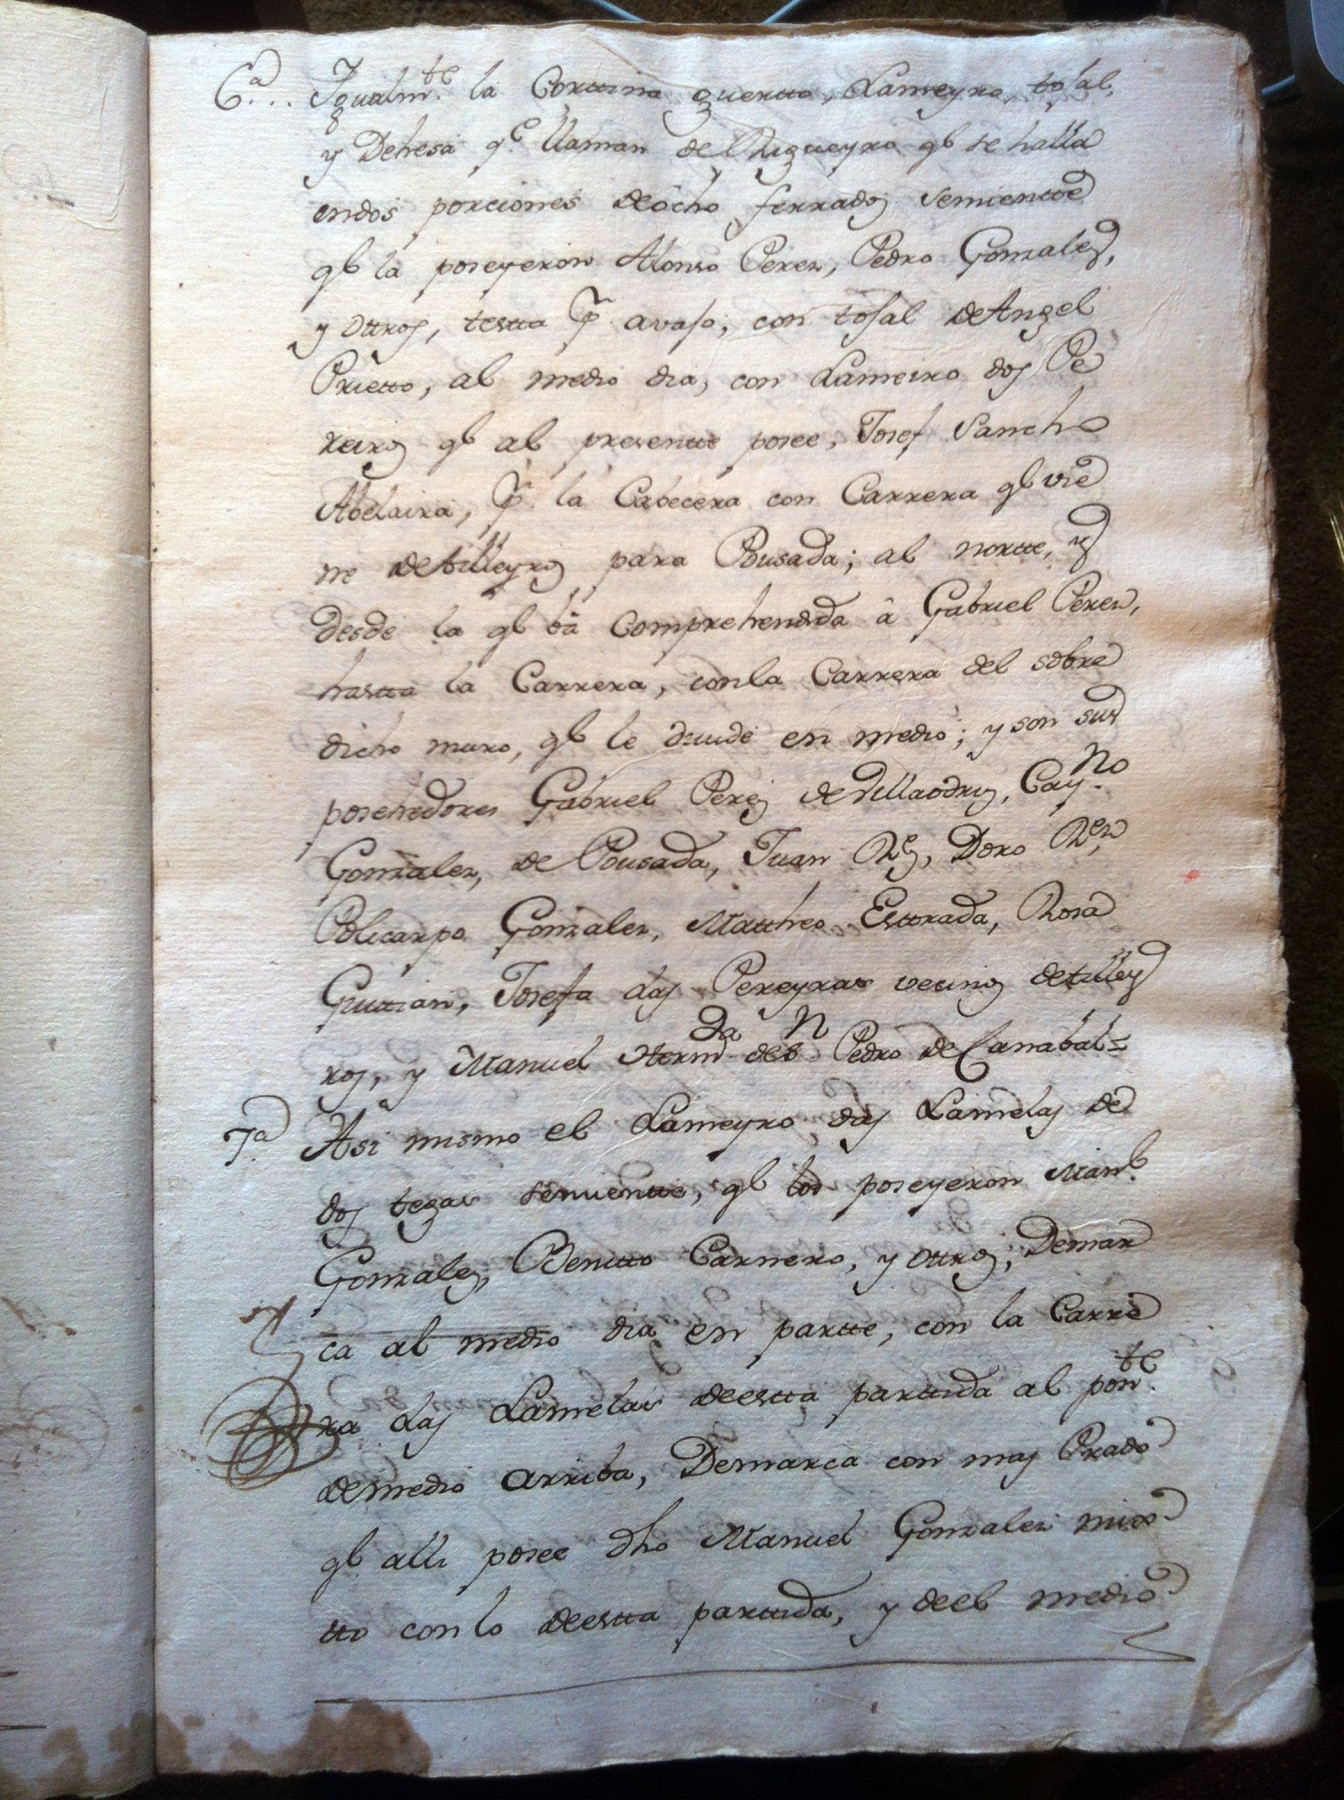 6.ª.. Igualm.te la Corttina guertto, Lameyro, tosal,
y Dehesa q.e llaman del Higueyro ql. se halla
endos porciones deôcho ferrados Semienttte
ql la poseyeron Alonso Perez, Pedro Gonzalez,
y ôttros, testta p. avaso, con tosal de Angel
Prietto, al medio dia, con Lameiro dos Pe
reiros ql al presentte posee, Josef Sancho
Abelaira, p. la Cabecera con Carrera ql vie
ne detilleyros para Pousada; al nortte, y
desde la ql bâ Comprehendida â Gabriel Perez,
hastta la Carrera, conla Carrera del sobre
dicho muro, ql le divide en medio; y son sus
posehedores Gabriel Perez de Villaodriz, Cay.no
Gonzalez, de Pousada, Juan Rz, Doro Rez
Policarpo Gonzalez, Mattheo Esttrada, Rosa
Guttian, Josefa das Pereyras vecinos detilley
ros, y Manuel Herm.da deln Pedro de Canabal=
7.ª Asi mismo el Lameyro das Lamelas de
dos tegas semientte, ql los poseyeron Man.l
Gonzalez, Benitto Carnero, y ôttros, Demar
ca al medio dia en partte, con la Carre
ra das Lamelas deestta parttida al pon.te
demedio arriba, Demarca con mas Prado
ql alli posee dho Manuel Gonzalez mix
tto con lo deestta parttida, y deel medio